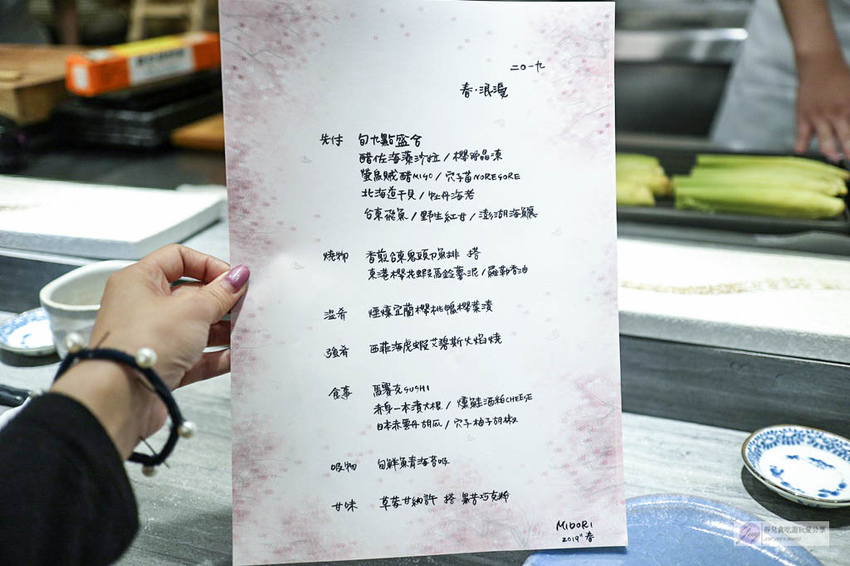 二〇一九
春·浪漫
先付 旬九點盛合
醋佐海藻沙拉/櫻 晶凍
螢烏賊醋MISO/穴子苗NORESORE
北海道干貝/牡丹海老
台東飛魚/野生紅甘/澎湖海鱺
燒物 香煎台東鬼頭刀魚排 搭
東港櫻花蝦馬鈴薯泥/羅勒香油
溫肴 煙燻宜蘭櫻桃鴨櫻葉漬
強肴 西非海虎蝦艾碧斯火焰燒
食事 馬賽克SUSHI
赤身一本漬大根/燻鮭酒粕CHEESE
日本赤雲丹胡瓜/穴子柚子胡椒
吸物 旬鮮魚青海苔
甘味 草莓甘納許 搭 巧克
MIDORI
2019" 春